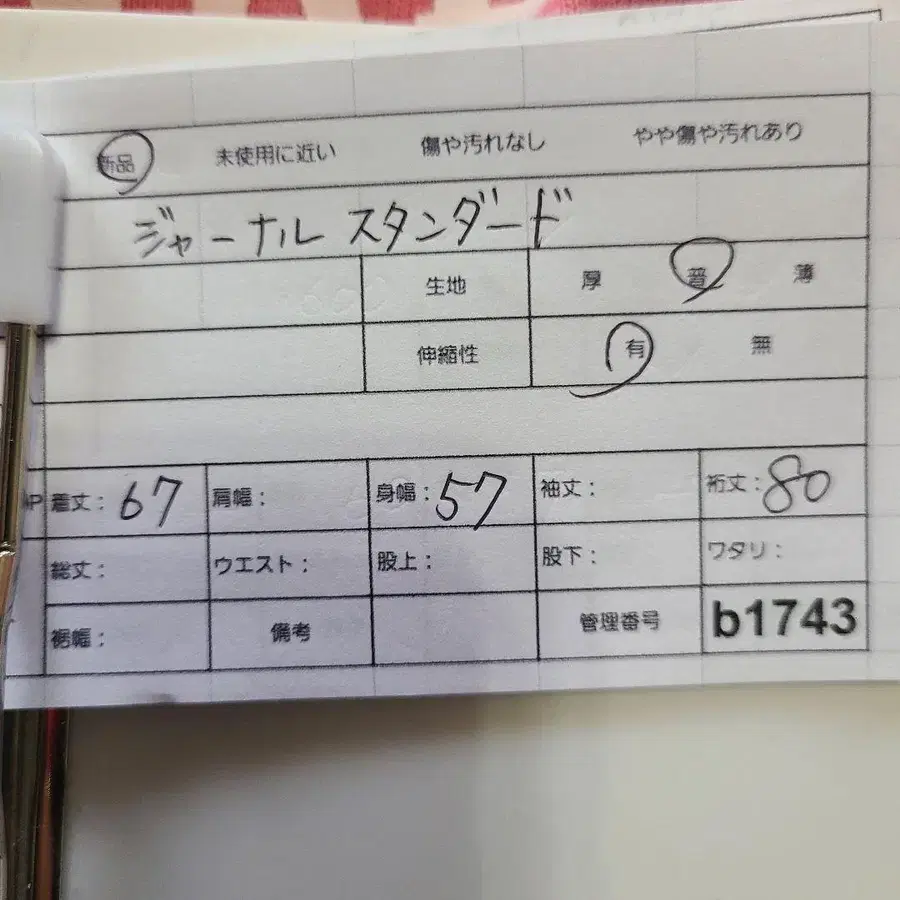 新品 未使用に近い 傷や汚れなし やや傷や汚れあり
ジャーナル スタンダード
生地 厚 普 薄
伸縮性 有 無
着丈：67 肩幅： 身幅：57 袖丈： 裄丈：80
総丈： ウエスト： 股上： 股下： ワタリ：
裾幅： 備考 管理番号 b1743